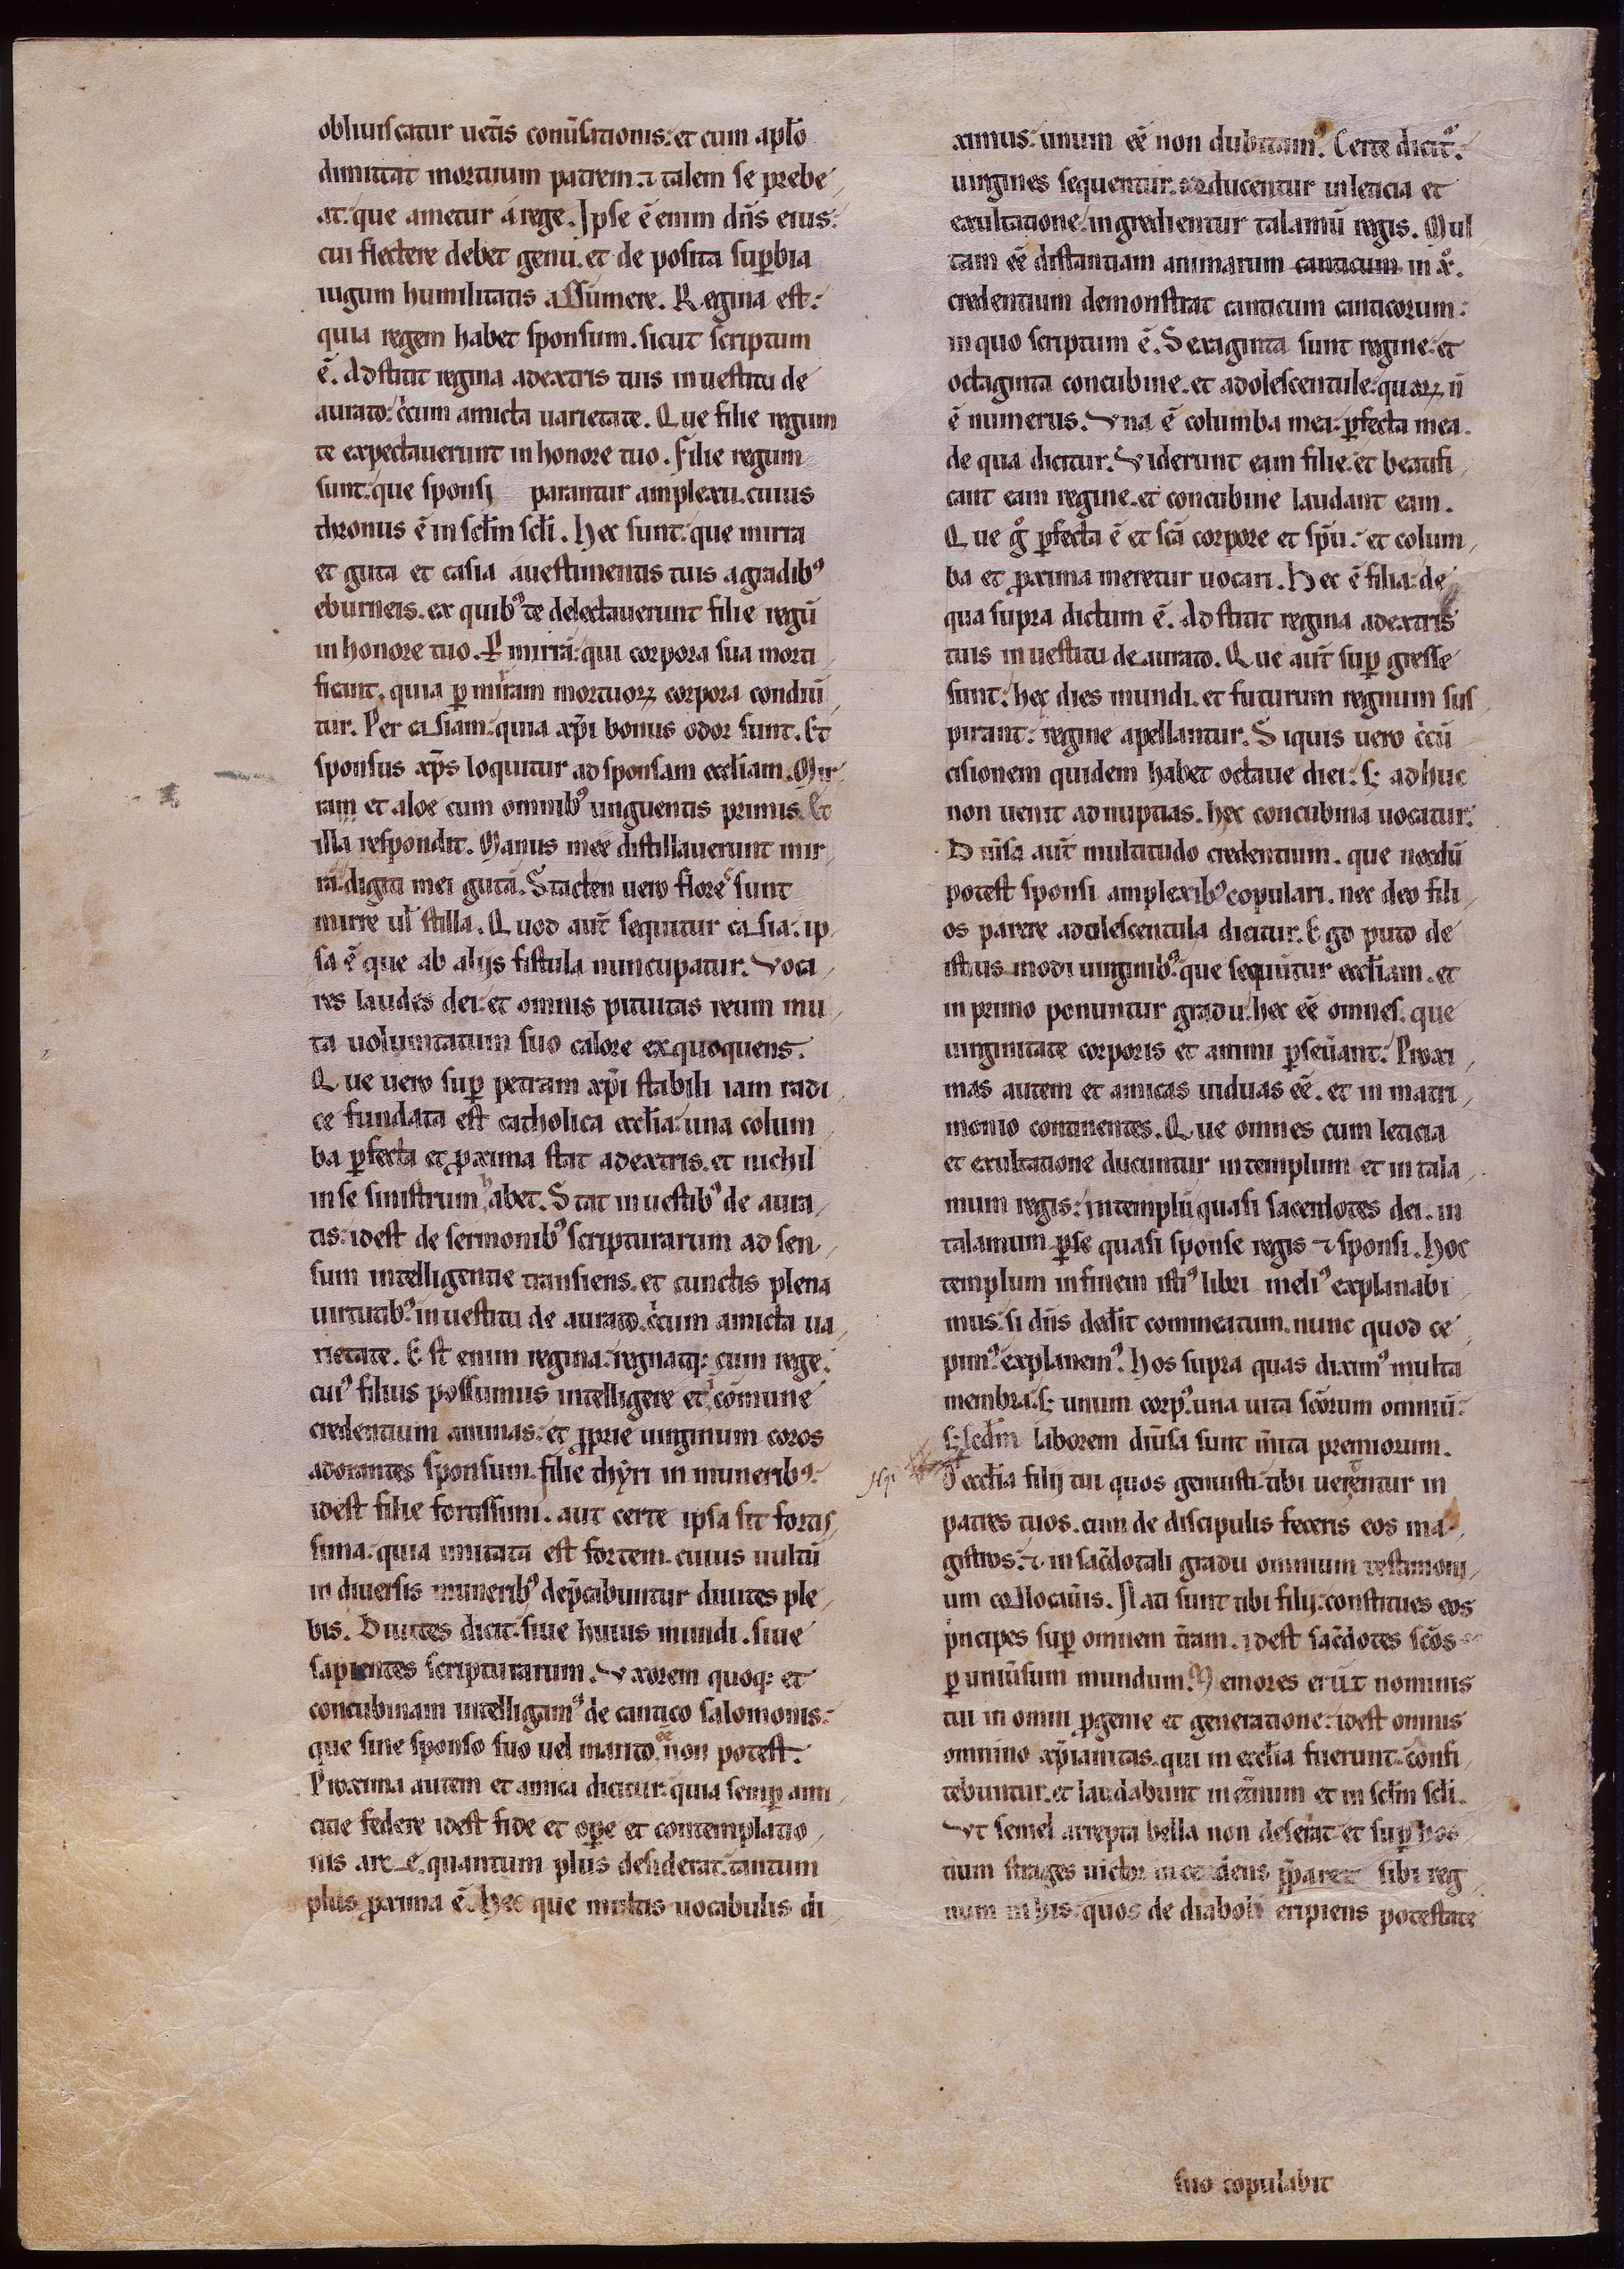 obliuiscatur uet̄is conūsationis: et cum apl̄o
dimittat mortuum patrem. ⁊ talem se prebe
at: que ametur a rege. Ipse ē enim dn̄s eius:
cui flectere debet genu. et de posita suꝑbia
iugum humilitatis assumere. Regina est:
quia regem habet sponsum. sicut scriptum
ē. Adstitit regina adextris tuis in uestitu de
aurato: c̄cum amicta uarietate. Que filie regum
te expectauerunt in honore tuo. Filie regum
sunt: que sponsi parantur amplexu. cuius
thronus ē in sc̄lm sc̄li. Hec sunt: que mirra
et guta et casia auestimentis tuis agradibꝰ
eburneis. ex quibꝰ te delectauerunt filie regū
in honore tuo. Ꝑ mirrā: qui corpora sua morti
ficant. quia ꝑ mirram mortuoꝝ corpora condiū
tur. Per casiam: quia xp̄i bonus odor sunt. Et
sponsus xp̄s loquitur ad sponsam eccl̄iam. Mir
ram et aloe cum omnibꝰ unguentis primis. Et
illa respondit. Manus mee distillauerunt mir
rā: digiti mei gutā. Stacten uero flores sunt
mirre ul̄ stilla. Quod aut̄ sequitur casia: ip
sa ē que ab alijs fistula nuncupatur. Voca
res laudes dei: et omnis pituitas reum mu
ta uoluntatum suo calore exquoquens.
Que uero suꝑ petram xp̄i stabili iam radi
ce fundata est catholica eccl̄ia: una colum
ba ꝑfecta et ꝓxima stat adextris. et nichil
in se sinistrum habet. Stat in uestibꝰ de aura
tis: idest de sermonibꝰ scripturarum ad sen
sum intelligentie transiens. et cunctis plena
uirtutibꝰ: in uestitu de aurato. c̄cum amicta ua
rietate. Est enim regina: regnatq: cum rege.
cuiꝰ filius possumus intelligere et ī cōmune
credentium animas: et ꝓprie uirginum coros
adorantes sponsum. filie thyri in muneribꝰ:
idest filie fortissimi. aut certe ipsa sit fortis
sima. quia imitata est fortem. cuius uultū
in diuersis muneribꝰ dep̄cabuntur diuites ple
bis. Diuites dicit: siue huius mundi. siue
sapientes scripturarum. Vxorem quoq: et
concubinam intelligamꝰ de cantico salomonis:
que sine sponso suo uel marito eē non potest.
Proxima autem et amica dicitur: quia semꝑ ami
citie federe idest fide et oꝑe et contemplatio
nis arc ē. quantum plus desiderat: tantum
plus ꝓxima ē. Hec que multis uocabulis di
ximus: unum eē non dubitamꝰ. Certe dicit͛:
uirgines sequentur. adducentur in leticia et
exultatione: ingredientur talamū regis. Mul
tam eē distantiam animarum canticum in xo.
credentium demonstrat canticum canticorum:
in quo scriptum ē. Sexaginta sunt regine: et
octaginta concubine. et adolescentule: quaꝝ n̄
ē numerus. Vna ē columba mea: ꝑfecta mea.
de qua dicitur. Viderunt eam filie: et beatifi
cant eam regine. et concubine laudant eam.
Que gͦ ꝑfecta ē et sc̄a corpore et sp̄u: et colum
ba et ꝓxima meretur uocari. Hec ē filia: de
qua supra dictum ē. Adstitit regina adextris
tuis in uestitu de aurato. Que aut̄ suꝑ gresse
sunt: hec dies mundi. et futurum regnum sus
pirant: regine apellantur. Siquis uero c̄cū
cisionem quidem habet octaue diei: s: adhuc
non uenit ad nuptias. hec concubina uocatur.
Diūsa aut̄ multitudo credentium. que necdū
potest sponsi amplexibꝰ copulari. nec deo fili
os parere adolescentula dicitur. Ego puto de
istius modi uirginibꝰ: que sequūtur eccl̄iam. et
in primo ponuntur gradu: hec eē omnes. que
uirginitate corporis et animi ꝑseūant. Proxi
mas autem et amicas uiduas eē. et in matri
monio continentes. Que omnes cum leticia
et exultatione ducuntur in templum et in tala
mum regis: in templū quasi sacerdotes dei. in
talamum ꝑse quasi sponse regis ⁊ sponsi. Hoc
templum in finem istiꝰ libri meliꝰ explanabi
mus: si dn̄s ded̄it commeatum. nunc quod ce
pimꝰ: explanemꝰ. Hos supra quas diximꝰ multa
membra: s: unum corpꝰ. una uita scōrum omniū:
S: sc̄dm laborem diūsa sunt m̄ita premiorum.
O eccl̄ia filij tui quos genuisti tibi uerentur in
patres tuos. cum de discipulis feceris eos ma
gistros: ⁊ in sac̄dotali gradu omnium testimoni
um collocaūis. Nati sunt tibi filij: constitues eos
p̄ncipes suꝑ omnem t̄ram. idest sac̄dotes scōs
ꝑ uniūsum mundum. Memores erūt nominis
tui in omni ꝓgenie et generatione: idest omnis
omnino xp̄ianitas. qui in eccl̄ia fuerunt: confi
tebuntur. et laudabunt in et̄num et in sc̄lm sc̄li.
Vt semel arrepta bella non deserat: et suꝑ hos
tium strages uictor incedens p̄paret sibi reg
num in his: quos de diaboli eripiens potestate
suo copulabit